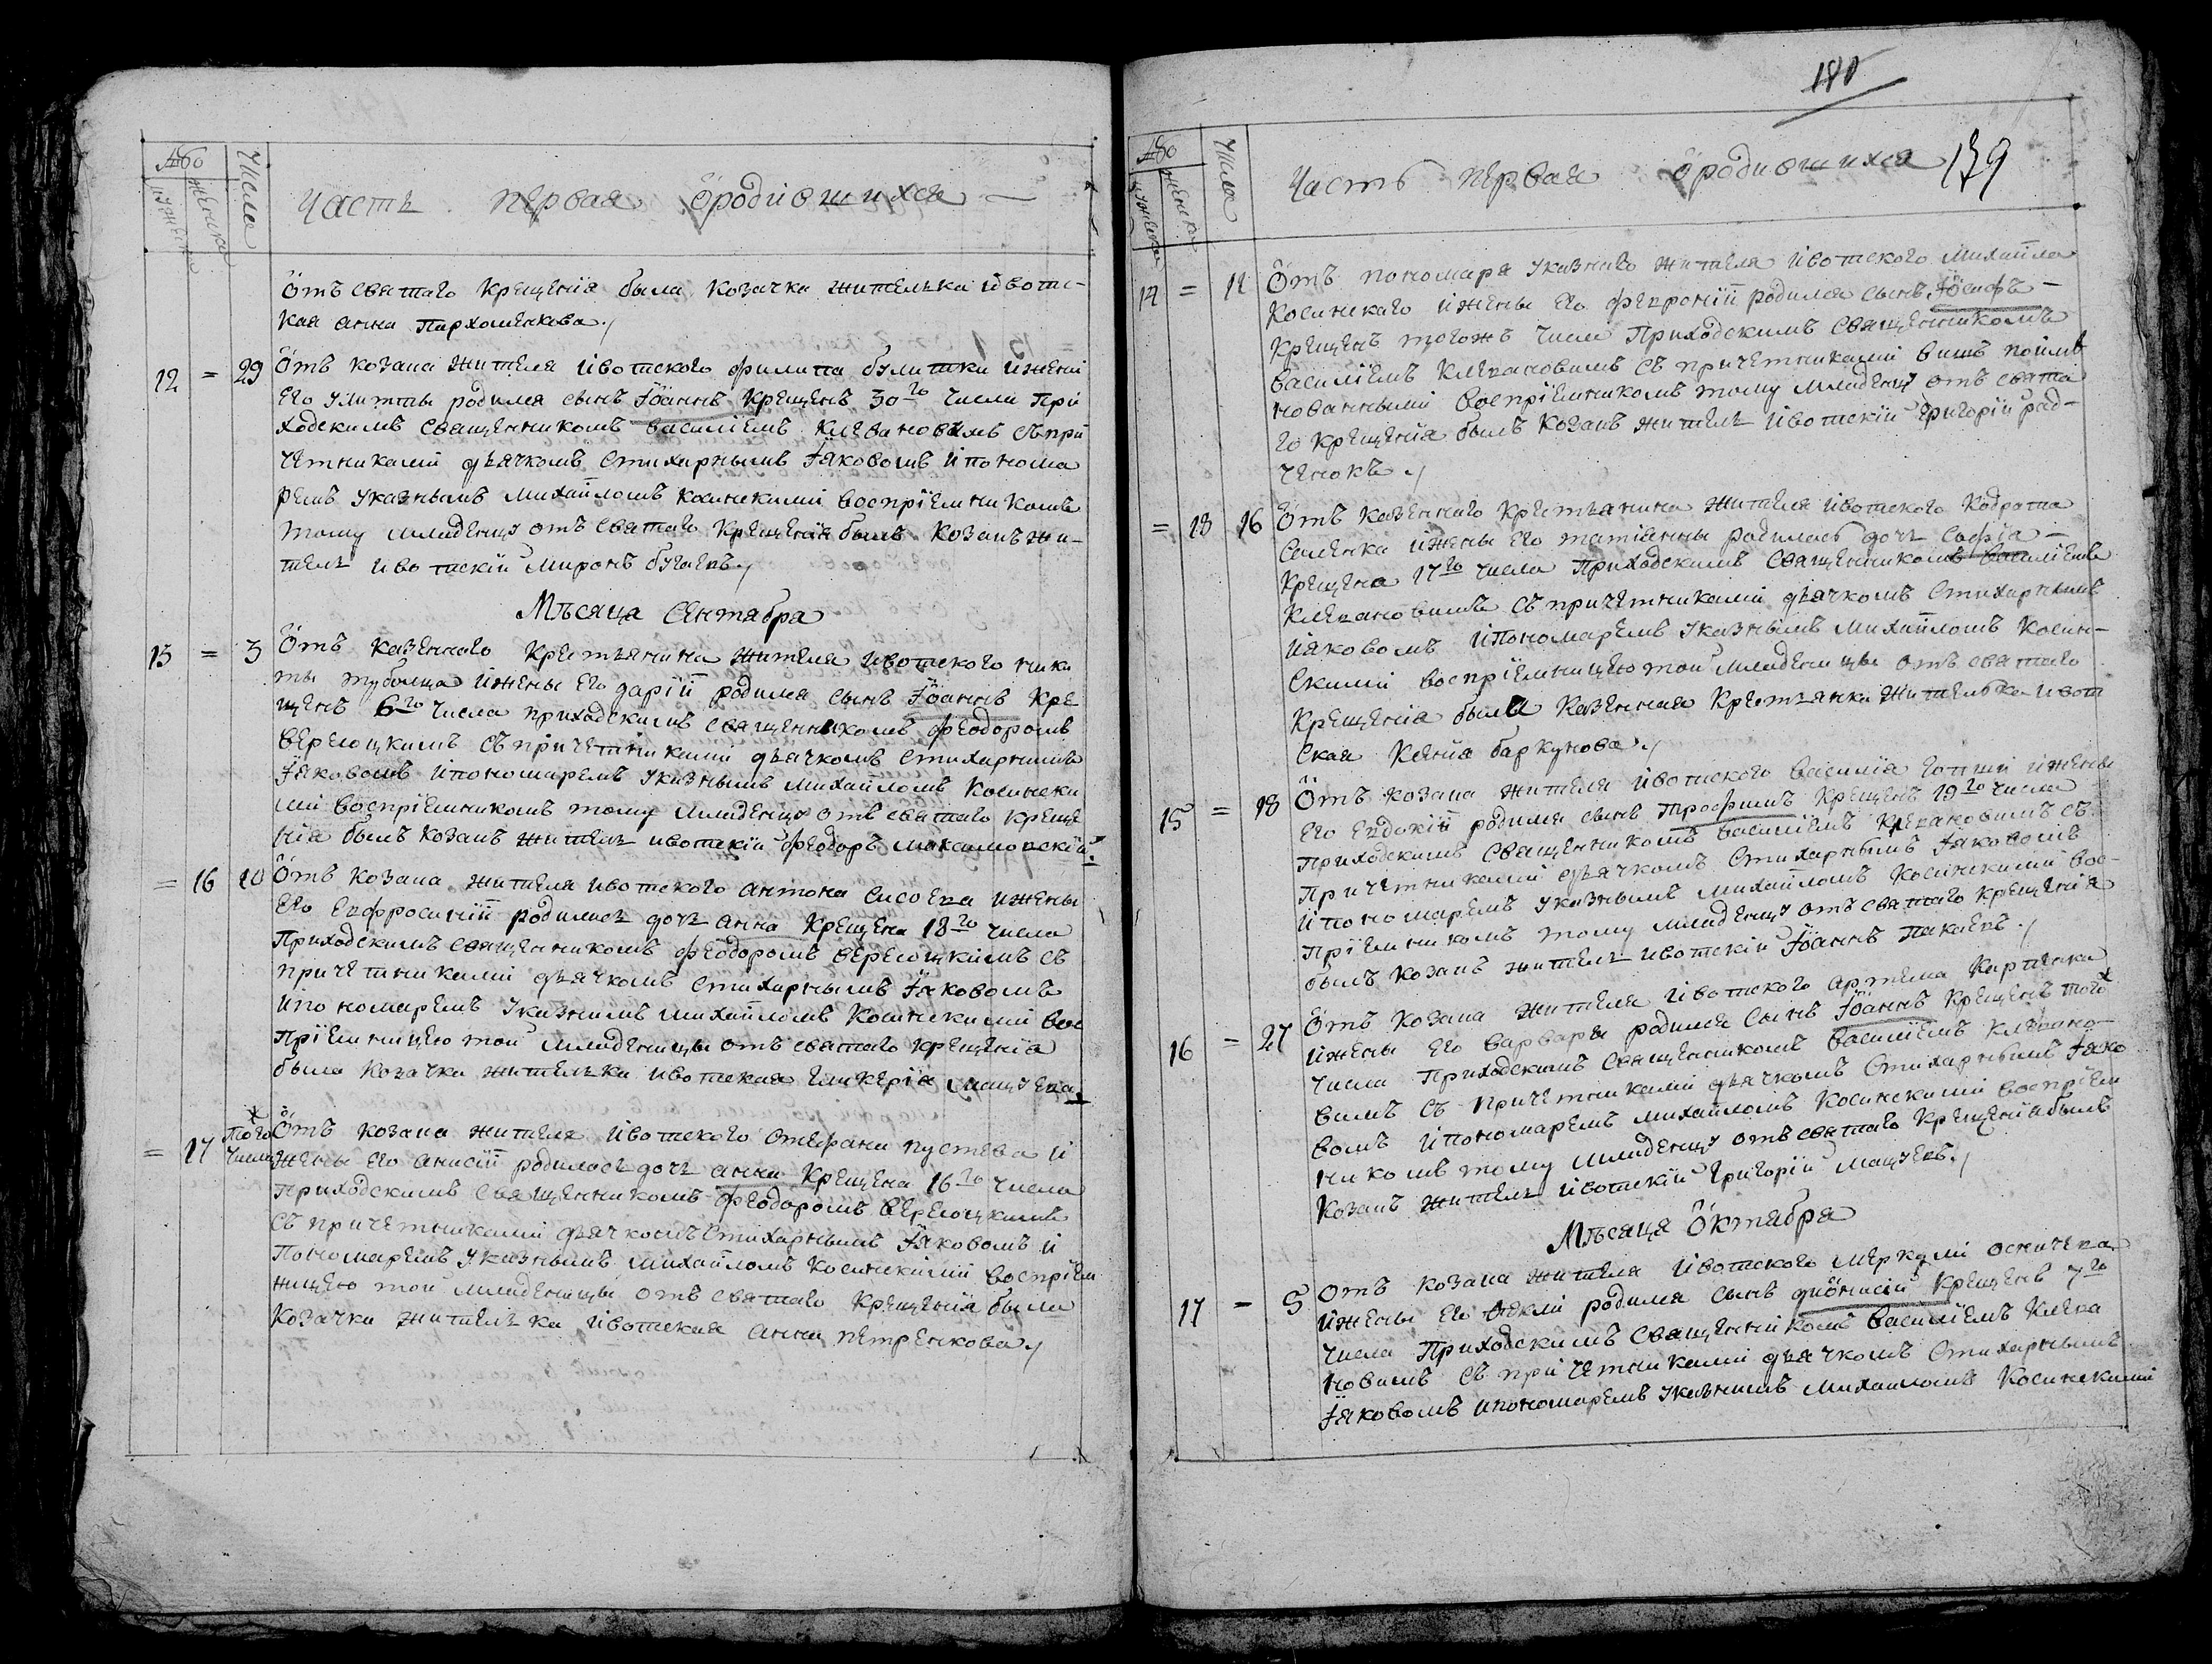 Часть первая о родившихся
Число
Отъ святаго Крещенія была козачка жителька ивотс-
кая анна Пархоменкова
12 = 29 Отъ козака жителя ивотского филипа булитки и жени
его улиты родился сынъ Іоаннъ Крещенъ 30го числа При
ходскимъ священникомъ василіемъ Клевановимъ съ при
четниками дьячкомъ Стихарнымъ Іяковомъ и понома
ремъ Указнымъ Михайломъ Косинскими воспріемникомъ
тому младенцу отъ святаго Крещенія былъ Козакъ жи-
тель ивотскій Миронъ бугаевъ
Мѣсяца Сентабра
13 = 3 Отъ казенного Крестьянина жителя ивотского ники
ты тубольца и жены его даріи родился сынъ Іоаннъ Кре
щенъ 6го числа приходскимъ священникомъ феодоромъ
верегоцкимъ съ причетниками дьячкомъ Стихарнимъ
Іяковомъ и пономаремъ указнымъ михайломъ Косински
ми воспріемникомъ тому младенцу отъ святаго креще
нія былъ козакъ житель ивотскій феодоръ максимовскій
= 16 10 Отъ козака жителя ивотского антона сисоева и жены
его евфросиніи родилась дочь анна Крещена 18го числа
Приходскимъ священникомъ феодоромъ верегоцкимъ съ
причетниками дьячкомъ Стихарнымъ Іяковомъ
и пономаремъ Указнимъ михайломъ Косинскими вос
пріемницею той младеницы отъ святаго Крещенія
была Козачка жителька ивотская гликерія мацуева
= 17 Того числа Отъ козака жителя ивотского стефана пустева и
жены его анисіи родилась дочь анна Крещена 16го числа
Приходскимъ Священникомъ феодоромъ верегоцкимъ
съ причетниками дьячкомъ Стихарнымъ Іяковомъ и
Пономаремъ Указнымъ михайломъ Косинскими воспріем
ницею той младеницы отъ святаго Крещенія была
Козачка жителька ивотская анна петренкова
180
Часть первая о родившихся 179
Число
14 = 11 Отъ пономаря указного жителя ивотского Михайла
Косинского и жены его февроніи родился сынъ Іосифъ -
Крещенъ тогожъ числа Приходскимъ Священникомъ
василіемъ Клевановимъ съ причетниками вишъ пойме
нованными воспріемникомъ тому младенцу отъ свята
го крещенія былъ козакъ житель ивотскій григорій рад-
ченокъ
= 18 16 Отъ Казенного Крестьянина жителя ивотского Кодрата
Саленка и жены его татіанны родилась дочь Софіа -
Крещена 17го числа Приходскимъ Священникомъ василіемъ
Клевановимъ съ причетниками дьячкомъ Стихарнымъ
Іяковомъ и Пономаремъ Указнымъ Михайломъ Косин-
скими воспріемницею той младеницы отъ святаго
Крещенія была Казенная Крестьянка жителька ивот
ская Ксенія баркунова
15 = 18 Отъ козака жителя ивотского василія и жены
его Евдокіи родился сынъ Трофимъ Крещенъ 19го числа
приходскимъ Священникомъ василіемъ Клевановимъ съ
Причетниками дьячкомъ Стихарнымъ Іяковомъ
и пономаремъ указнымъ Михайломъ Косинскими вос-
пріемникомъ тому младенцу отъ святаго крещенія
былъ козакъ житель ивотскій Іоаннъ Пакаевъ
16 = 27 Отъ Козака жителя ивотского артема Карпенка
и жены его варвары родился сынъ Іоаннъ Крещенъ того
числа Приходскимъ Священникомъ василіемъ Клевано-
вимъ съ причетниками дьячкомъ Стихарнымъ Іяко
вомъ и пономаремъ михайломъ Косинскими воспріем
никомъ тому младенцу отъ святаго Крещенія былъ
Козакъ житель ивотскій григорій мацуевъ
Мѣсяца Октабра
17 - 5 Отъ козака жителя ивотского меркулі оскичева
и жены его феклы родился сынъ діонисій Крещенъ 7го
числа Приходскимъ Священникомъ василіемъ Клева
новимъ съ причетниками дьячкомъ Стихарнымъ
Іяковомъ и пономаремъ указнимъ михаиломъ Косинскими